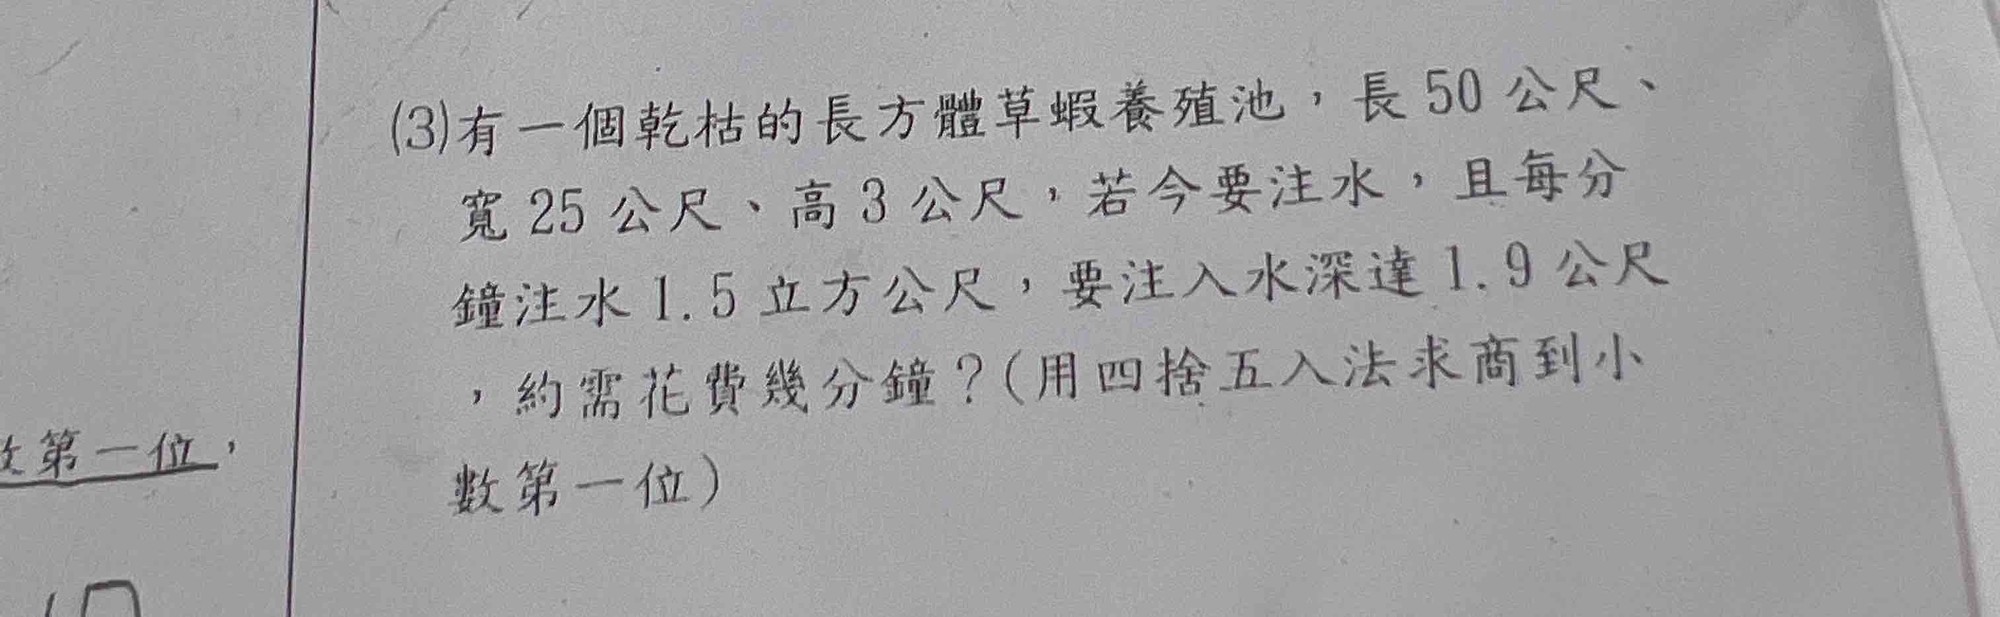 (3)有一個乾枯的長方體草蝦養殖池，長 50 公尺、
寬 25 公尺、高 3 公尺，若今要注水，且每分
鐘注水 1.5 立方公尺，要注入水深達 1.9 公尺
，約需花費幾分鐘？(用四捨五入法求商到小
數第一位)
第一位，